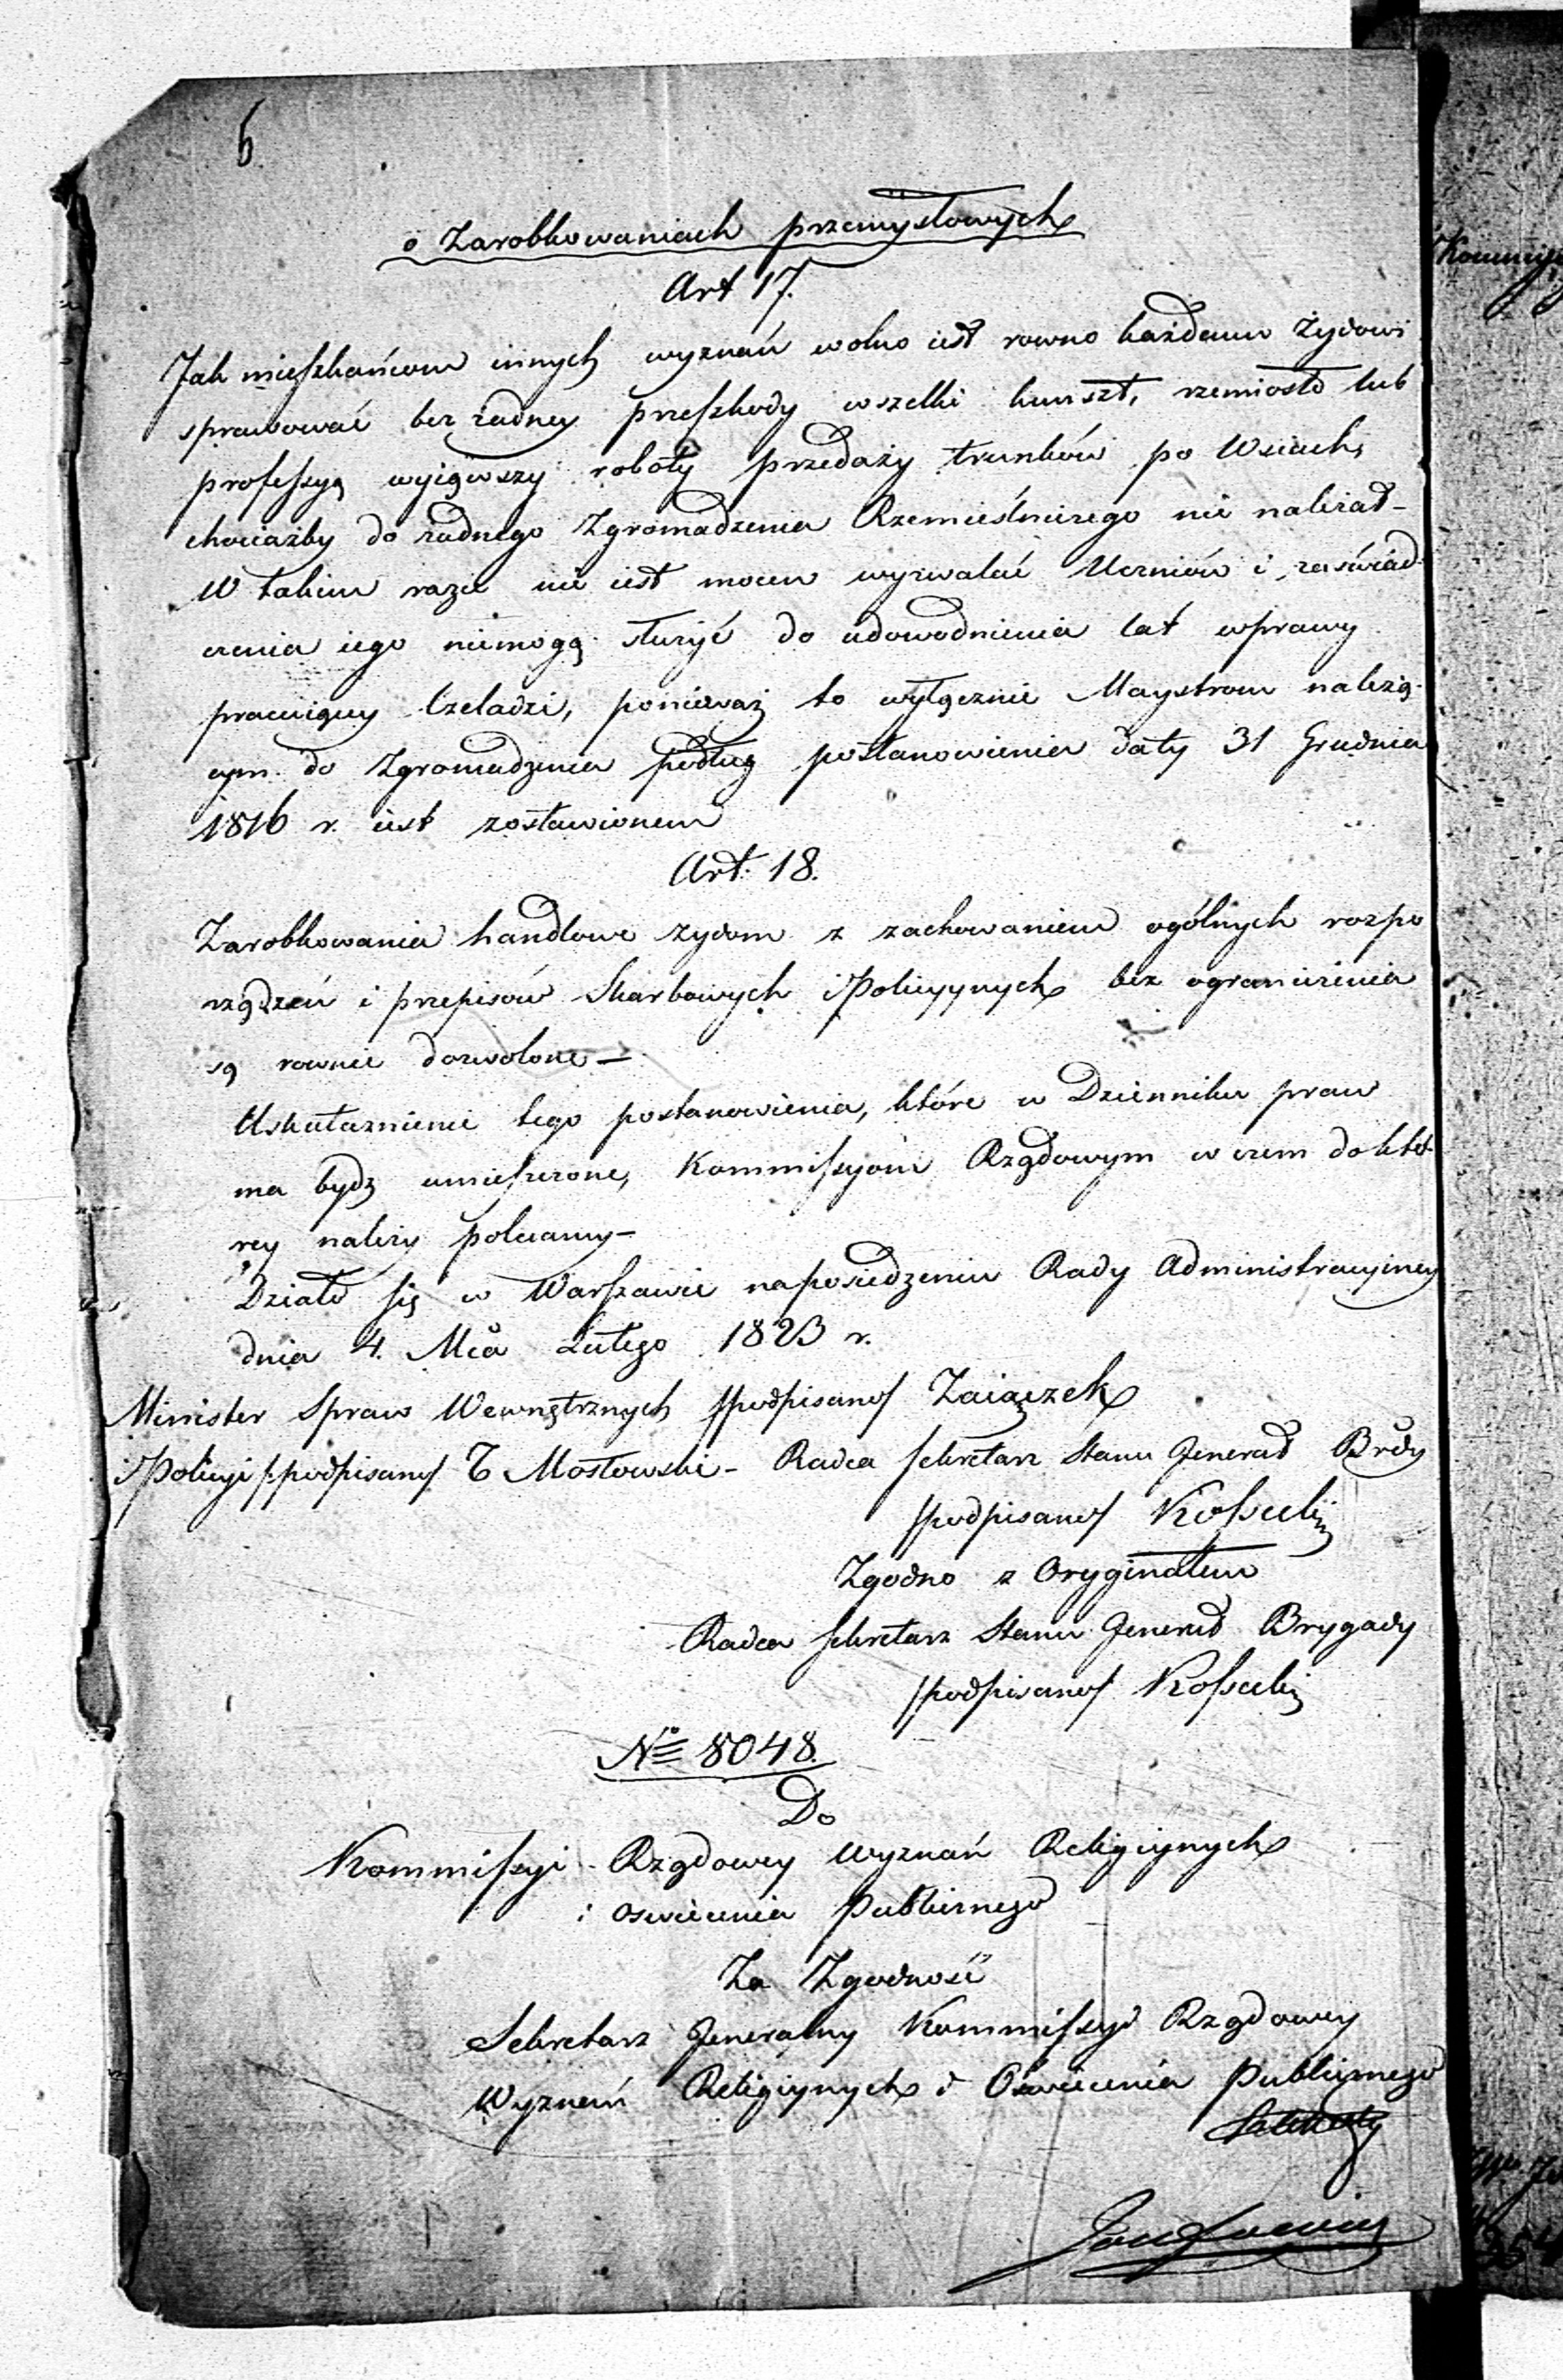 6
o Zarobkowaniach przemysłowych
Art 17.
Jak mieszkańcom innych wyznań wolno iest rowno każdemu Żydowi
sprawować bez żadney przeszkody wszelki kunszt, rzemiosło lub
professyą wyiąwszy roboty przedaży trunków po Wsiach,
chociażby do żadnego Zgromadzenia Rzemieślniczego nie należał-
W takim razie nie iest mocen wyzwalać Uczniów i zaświad
czenia iego niemogą służyć do udowodnienia lat wprawy
pracuiący Czeladzi, ponieważ to wyłącznie Maystrom należą-
cym do Zgromadzenia podług postanowienia daty 31 Grudnia
1816 r. iest zostawionem
Art. 18.
Zarobkowania handlowe żydom z zachowaniem ogólnych rozpo
rządzeń i przepisów Skarbowych i Policyynych bez ograniczenia
są rownie dozwolone—
Uskutecznienie tego postanowienia, które w Dzienniku praw
ma bydz umieszczone, Kommissyom Rządowym w czem do któ-
rey należy polecamy-
Działo się w Warszawie na posiedzeniu Rady Administracyiney
dnia 4. Mca Lutego 1823 r.
Minister Spraw Wewnętrznych /podpisano/ Zaiączek
i Policyi /:podpisano/ T Mostowski - Radca Sekretarz Stanu Jenerał Brdy
/podpisano/ Kossecki
Zgodno z Oryginałem
Radca Sekretarz Stanu Jenerał Brygady
/podpisano/ Kossecki
No 8048.
Do
Kommissyi Rządowey Wyznań Religiynych
i Oswiecenia Publicznego
Za Zgodność
Sekretarz Jeneralny Kommissyi Rządowey
Wyznań Religiynych i Oświecenia Publicznego